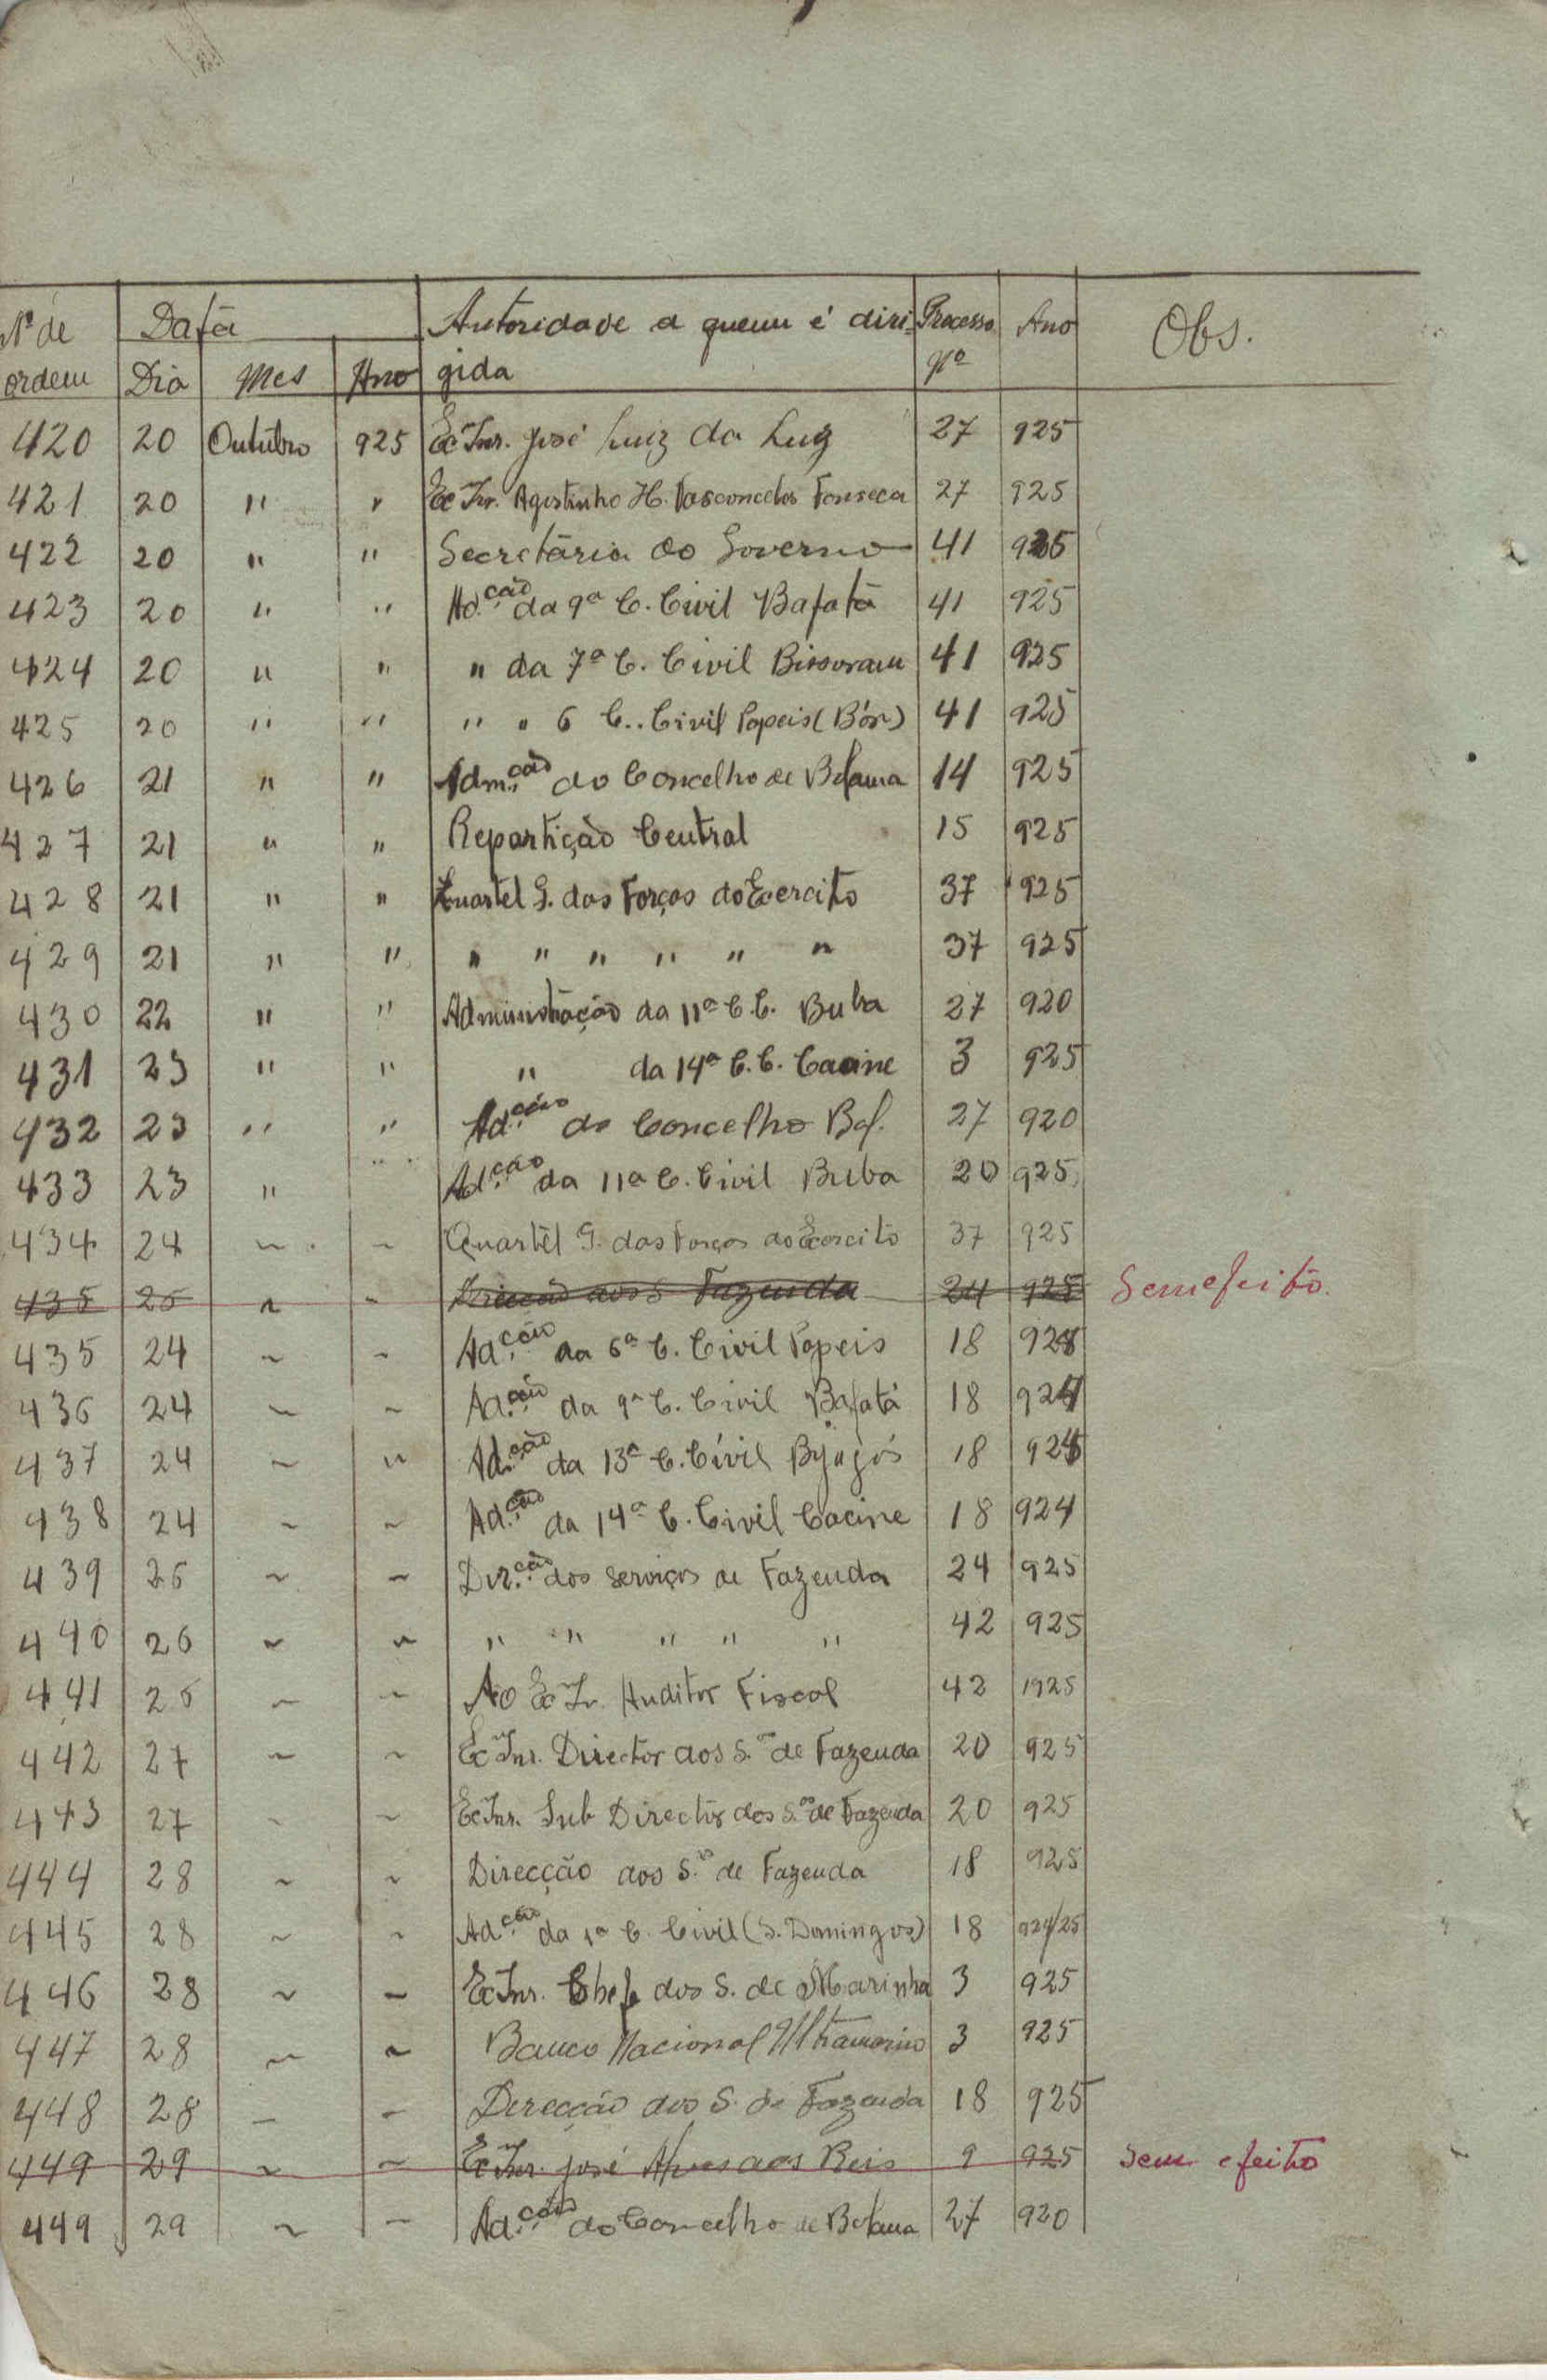 Nº de Data Autoridade a quem é diri- Processo Ano Obs.
ordem Dia Mes Ano gida Nº
420 20 Outubro 925 Ex.mo Snr. José Luiz da Luz 27 925
421 20 " " Ex.mo Snr. Agostinho H. Vasconcelos Fonseca 27 925
422 20 " " Secretária do Governo 41 925
423 20 " " Ad.ção da 9ª C. Civil Bafatá 41 925
424 20 " " " da 7ª C. Civil Bissoram 41 925
425 20 " " " " 6 C.. Civil Papeis (Bôr) 41 925
426 21 " " Adm.ção do Concelho de Bolama 14 925
427 21 " " Repartição Central 15 925
428 21 " " Quartel G. das Forças do Exercito 37 925
429 21 " " " " " " " " 37 925
430 22 " " Administração da 11ª C.C. Buba 27 920
431 23 " " " da 14ª C.C. Cacine 3 925
432 23 " " Ad.ção do Concelho Bol. 27 920
433 23 " " Ad.ção da 11ª C. Civil Buba 20 925
434 24 ~ ~ Quartel G. das Forças do Exercito 37 925
435 25 ~ ~ Direcção dos S Fazenda 24 925 Sem efeito.
435 24 ~ ~ Ad.ção da 6ª C. Civil Papeis 18 924
436 24 ~ ~ Ad.ção da 9ª C. Civil Bafatá 18 924
437 24 ~ " Ad.ção da 13ª C. Civil Bijagós 18 924
438 24 ~ ~ Ad.ção da 14ª C. Civil Cacine 18 924
439 26 ~ ~ Dir.ção dos serviços de Fazenda 24 925
440 26 ~ ~ " " " " " 42 925
441 26 ~ ~ Ao Ex.mo Sr. Auditor Fiscal 42 1925
442 27 ~ ~ Ex.mo Snr. Director dos S.os de Fazenda 20 925
443 27 ~ ~ Ex.mo Snr. Sub Director dos S.os de Fazenda 20 925
444 28 ~ ~ Direcção dos S.os de Fazenda 18 925
445 28 ~ ~ Ad.ção da 1ª C. Civil (S. Domingos) 18 924/25
446 28 ~ ~ Ex.mo Snr. Chefe dos S. de Marinha 3 925
447 28 ~ ~ Banco Nacional Ultramarino 3 925
448 28 ~ ~ Direcção dos S. de Fazenda 18 925
449 29 ~ ~ Ex.mo Snr. José Alves dos Reis 9 925 Sem efeito
449 29 ~ ~ Ad.ção do Concelho de Bolama 27 920